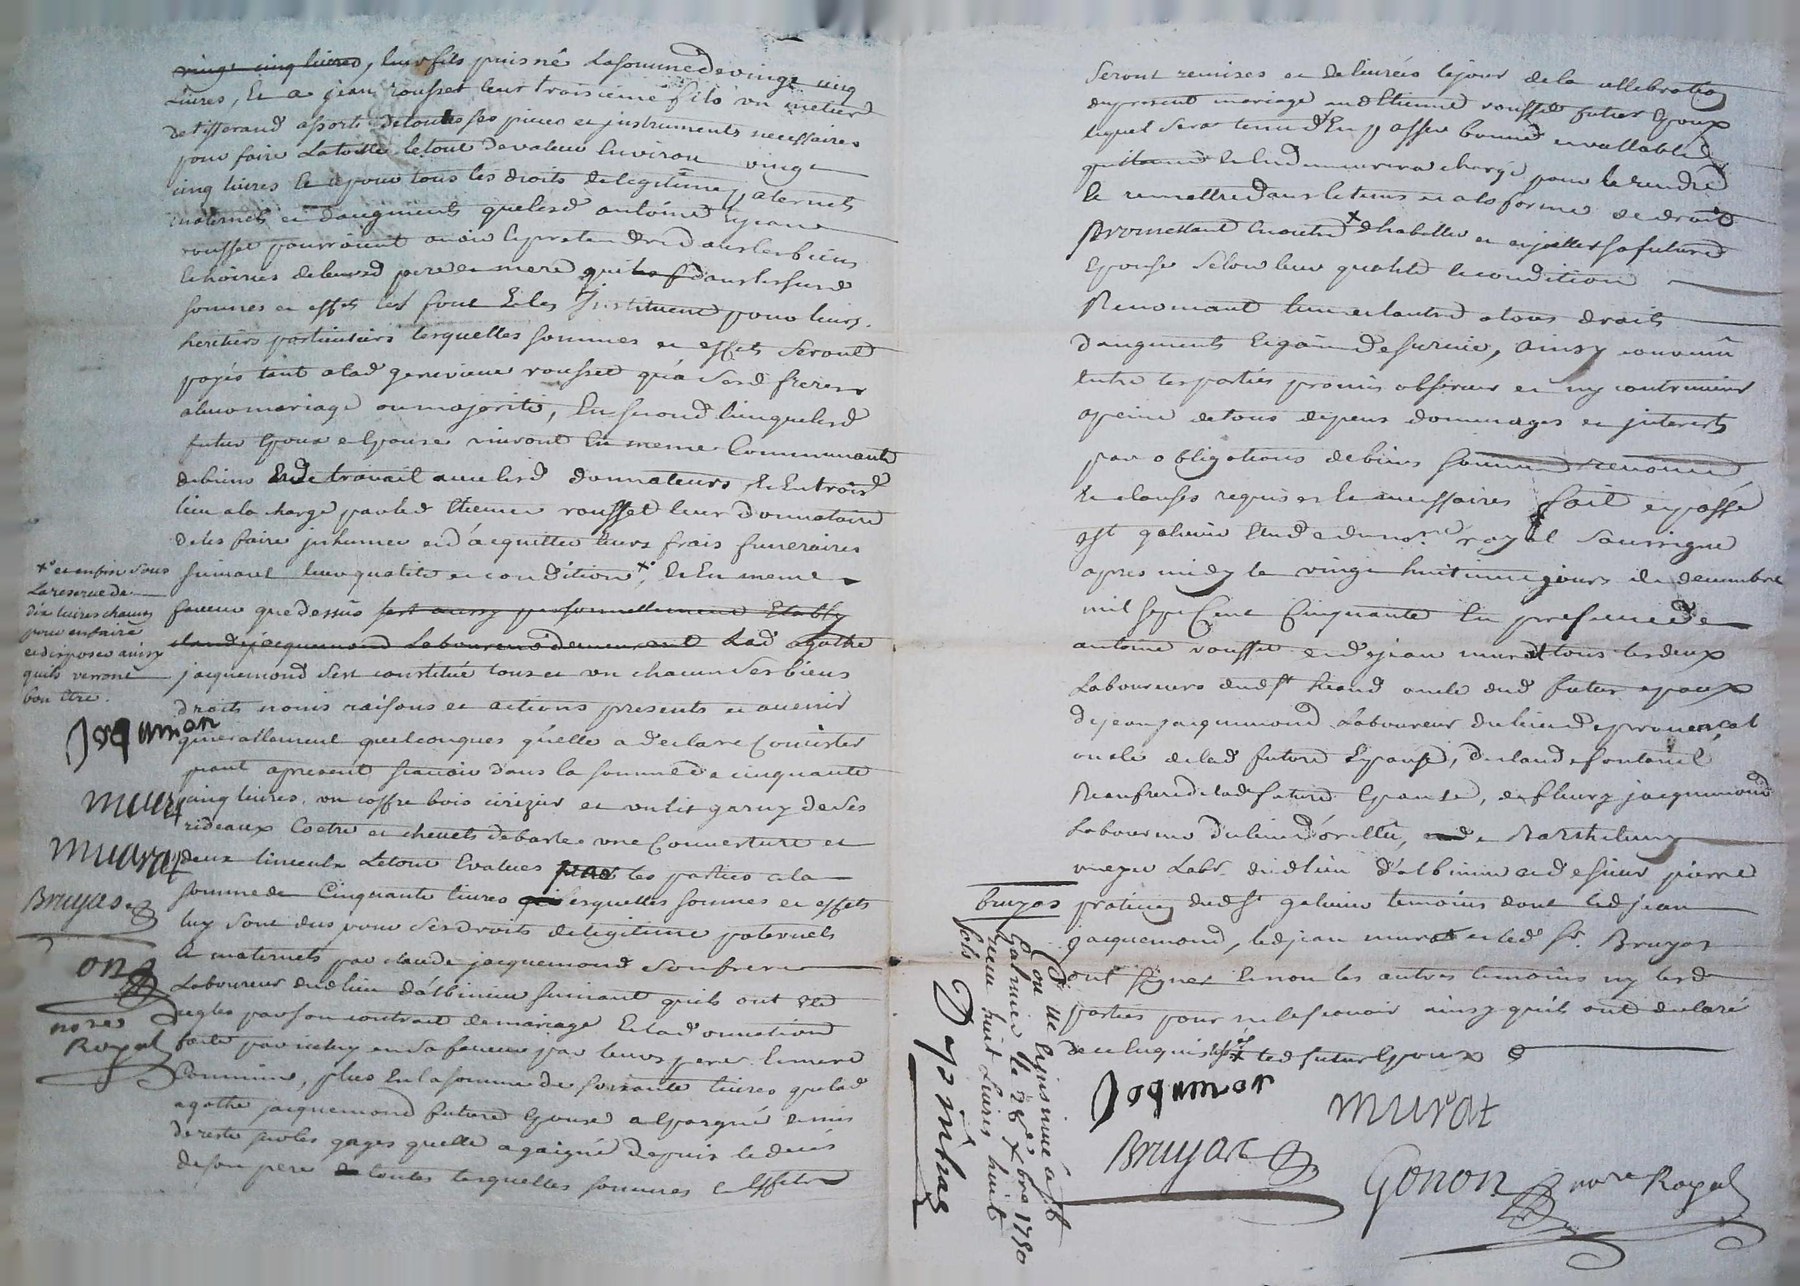 vingt cinq livres, leur fils puisné la somme de vingt cinq
livres, et a jean rousset leur troisieme fils un métier
de tisserand assorti de toutes ses pieces et instruments necessaires
pour faire la toille le tout de valeur environ vingt
cinq livres et ce pour tous les droits de legitime paternels
maternels et d'augments que lesd antoine et jean
rousset pourroient avoir et pretendre dans les biens
et hoiries de leursd pere et mere dans lesursd
sommes et effets les font et les Instituent pour leurs
heritiers particuliers lesquelles sommes et effets seront
payés tant a lad genevieve rousset qu'a sesd freres
a leur mariage ou majorité, En second lieu que lesd
futur Epoux et Epouse vivront En meme Communauté
de biens et de travail avec lesd donnateurs, et En trois.e
lieu a la charge par led Etienne rousset leur donnataire
de les faire inhumer et d'acquitter leurs frais funeraires
suivant leur qualité et condition x, Et En meme
faveur que dessus sest aussy personnellement Etably
claude jacquemond Laboureur demeurant Lad agathe
jacquemond s'est constitué tous et un chacun ses biens
droits noms raisons et actions presents et avenir
generallement quelconques qu'elle a declaré Consister
quant apresent scavoir dans la somme de cinquante
cinq livres, un coffre bois cirizier et un lit garny de ses
rideaux Coetre et chevets de basle une Couverture et
deux linceuls Le tout Evalués par les parties a la
somme de Cinquante livres lesquelles sommes et effets
luy sont dus pour ses droits de legitime paternels
et maternels par claude jacquemond son frere
Laboureur dud lieu d'albinieu suivant qu'ils ont été
reglés par son contrat de mariage Et la donnation
faite par iceluy en sa faveur par leurs pere et mere
Communs, plus En la somme de soixante livres que lad
agathe jacquemond future Epouse a Epargné et mis
de reste sur les gages quelle a gaigné depuis le decés
de son pere toutes lesquelles sommes et Effets
x et enfin sous
La reserve de
dix livres chacun
pour en faire
et disposer ainsy
quils verront
bon être.
Joqumon
murat
Bruyas
Gonon
no.re
Royal
seront remises et delivrées le jour de la cellebration
du present mariage aud Etienne rousset futur Epoux
lequel sera tenu d'En passer bonne et vallable
quittance et En demeurera chargé pour le rendre
et remettre dans le tems et a la forme de droit
Promettant En outre x d'habiller et enjoialler sa future
Epouse selon leur qualité et condition
Renonçant l'un et l'autre a tous droits
d'augments et gain de survie, ainsy convenu
entre les parties promis observer et ny contrevenir
a peine de tous depens dommages et interests
par obligations de biens soumis renoncé
et clauses requises et necessaires fait et passé
a st galmier Etude du no.re royal soussigné
apres midy le vingt huitieme jour de decembre
mil sept Cent Cinquante En presence de
antoine rousset et de jean murat tous les deux
Laboureurs dud st heand oncle dud futur epoux
de jean jacquemond Laboureur du lieu de provençal
oncle de lad future Epouse, de claude fontanel
Beaufrere de lad future Epouse, de fleury jacquemond
Laboureur du lieu d'orcillu, et de Barthelemy
lab.r dud lieu d'albinieu et de sieur pierre
bruyas praticien dud st galmier temoins dont led jean
jacquemond, led jean murat et led s.r Bruyas
ont signés et non les autres temoins ny lesd
parties pour ne le scavoir ainsy qu'ils ont declaré
de ce enquis led futur Epoux
Joqumon
murat
Bruyas
Gonon no.re Royal
Con.llé et Insinué a st
Galmier le 28 xbre 1750
Receu huit Livres huit
sols Daphinhas